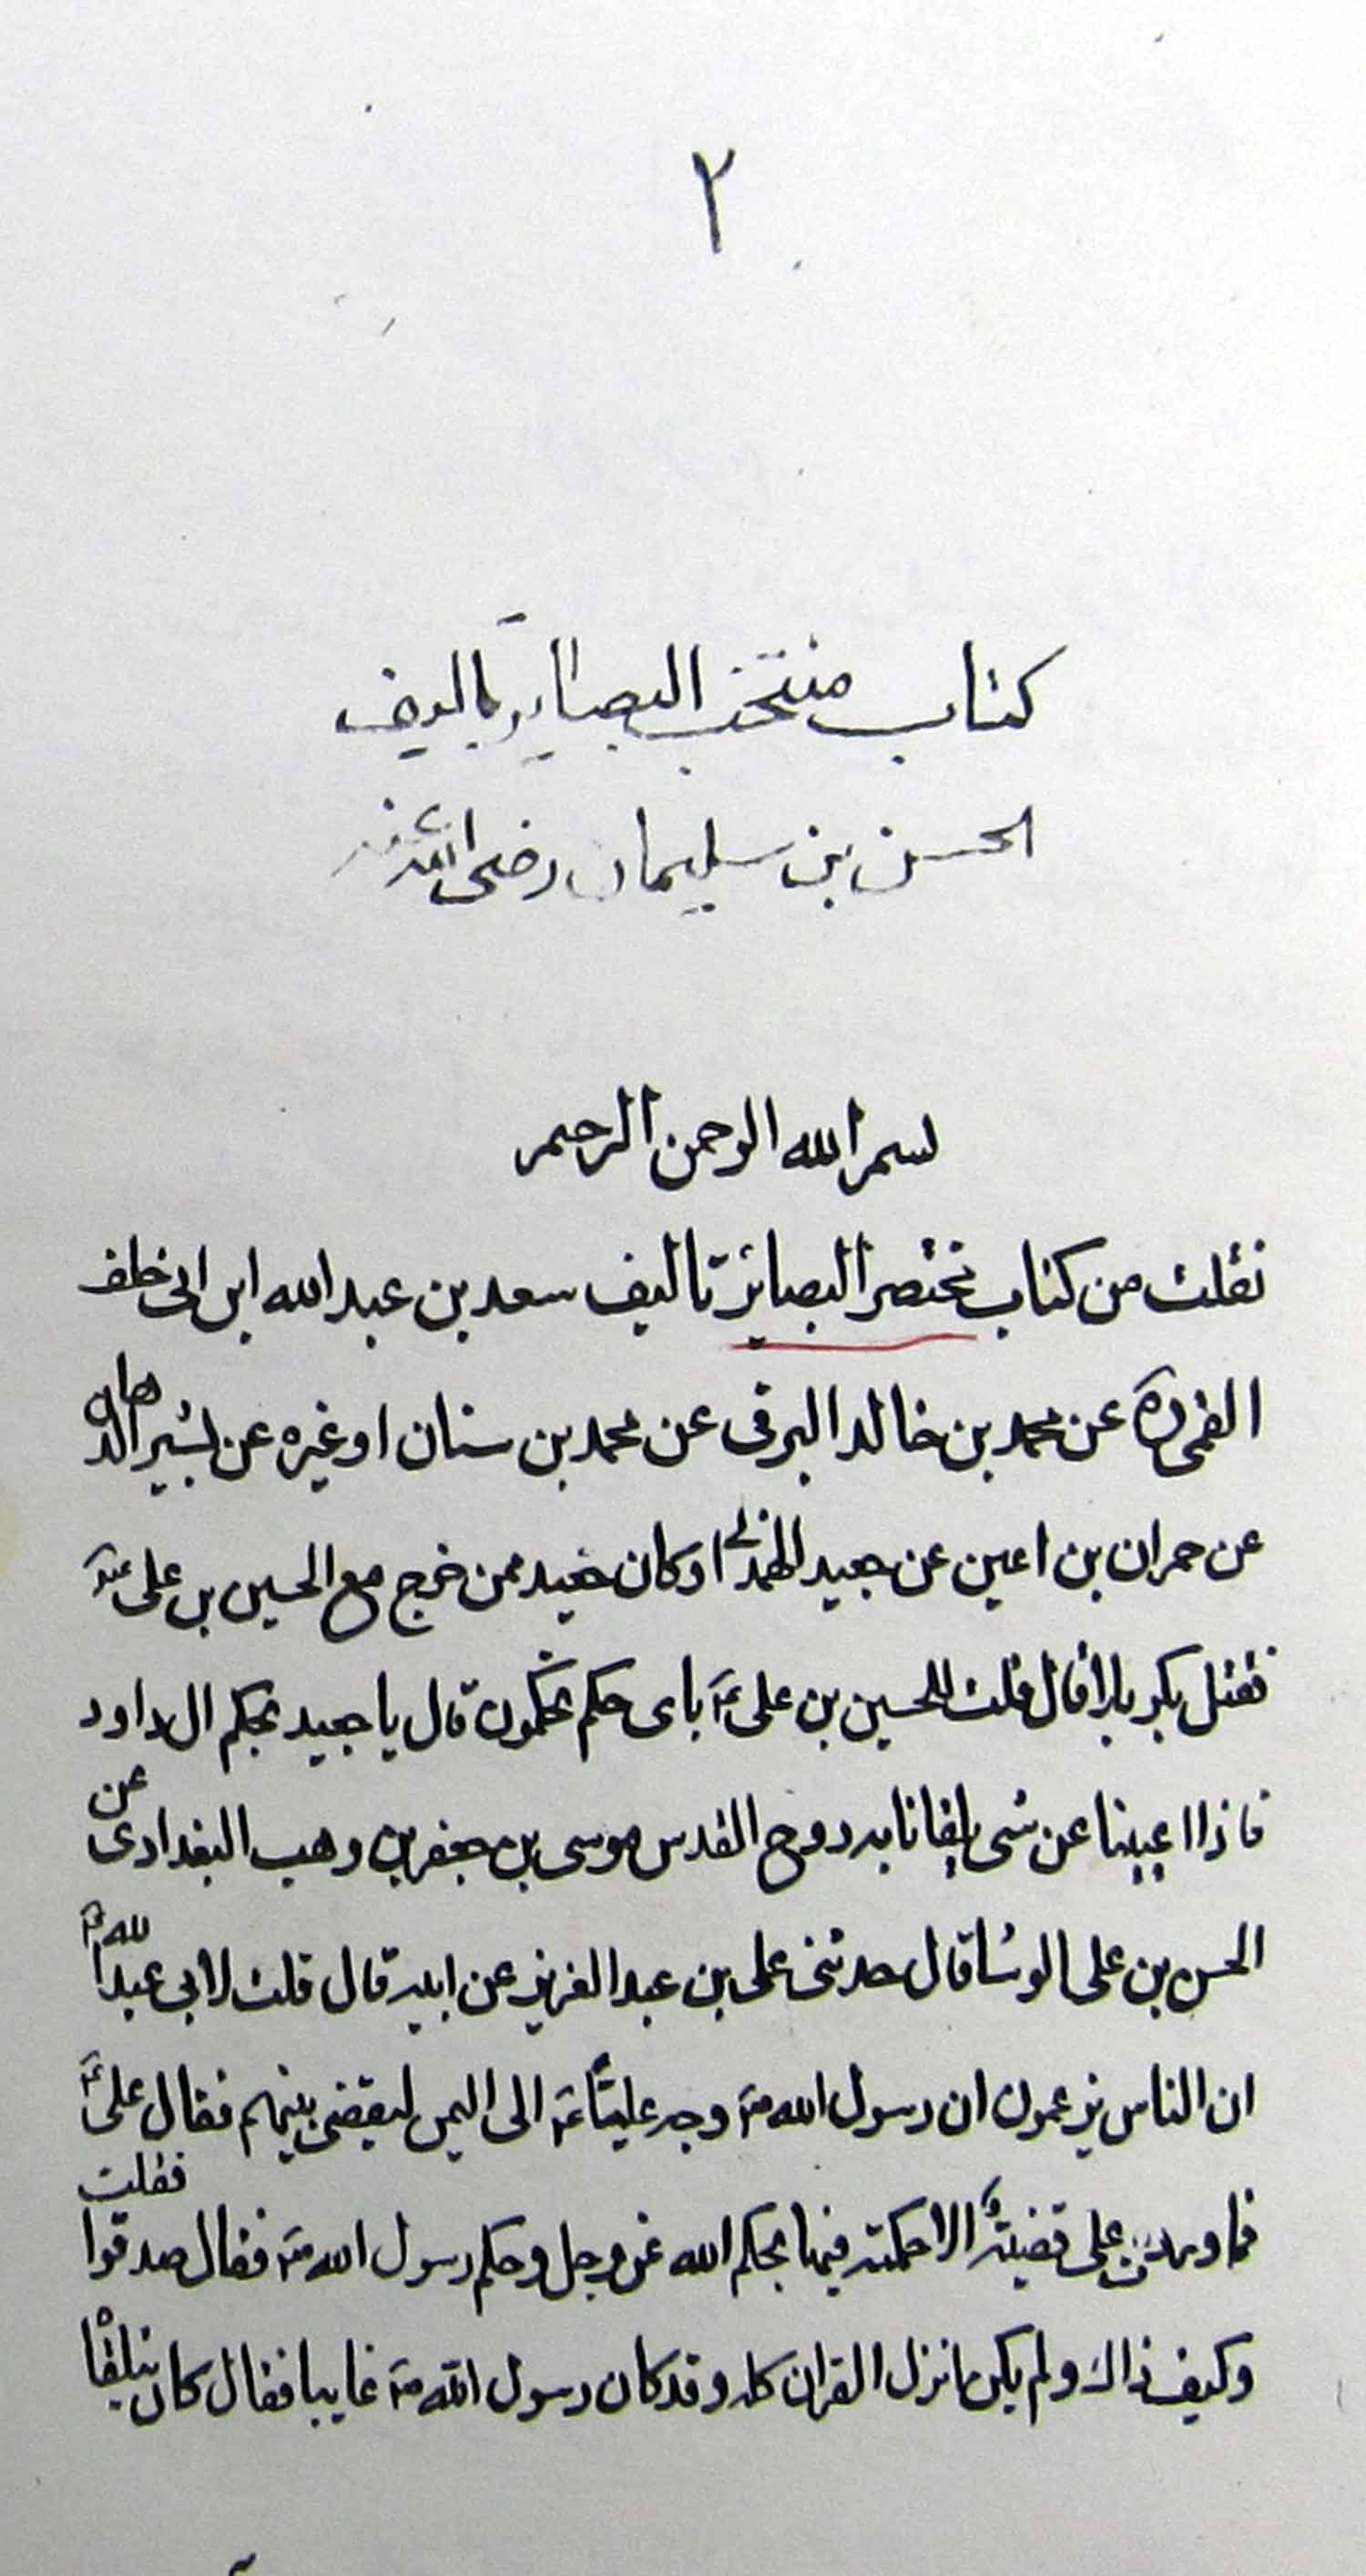 ٢
كتاب منتخب البصاير تاليف
الحسن بن سليمان رضى الله عنه
بسم الله الرحمن الرحيم
نقلت من كتاب مختصر البصائر تاليف سعد بن عبد الله ابن ابى خلف
القمى ره عن محمد بن خالد البرقى عن محمد بن سنان او غيره عن بشير الدهان
عن حمران بن اعين عن جعيد الهمدانى وكان جعيد ممن خرج مع الحسين بن على عه
فقتل بكربلا قال قلت للحسين بن على عه باى حكم تحكمون قال يا جعيد بحكم ال داود
فاذا اعيينا عن شى يلقانا به روح القدس موسى بن جعفر بن وهب البغدادى عن
الحسن بن على الوشا قال حدثنى على بن عبد العزيز عن ابيه قال قلت لابى عبد الله عه
ان الناس يزعمون ان رسول الله صه وجه عليّا عه الى اليمن ليقضى بينهم فقال على عه
فما وردت على قضية الا حكمت فيها بحكم الله عز وجل وحكم رسول الله صه فقال صدقوا فقلت
وكيف ذاك ولم يكن انزل القران كله وقد كان رسول الله صه غايبا فقال كان يتلقا